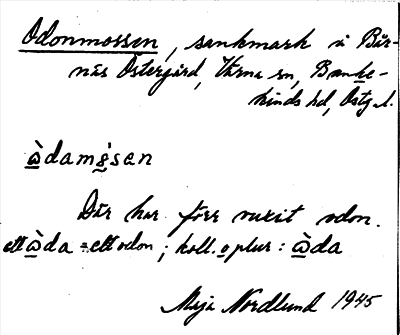 Odonmossen, sankmark i Bär-
näs Östergård, Värna sn, Banke-
kinds hd, Östg. l.
ὼdamǫ̀sən
Där har förr vuxit odon.
ett ὼda = ett odon ; koll. o plur : ὼda
Maja Nordlund 1945